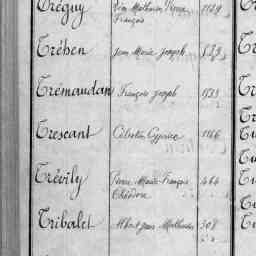 Tréguy Mathurin Pierre 1129
François
Tréhen Jean Marie Joseph 529
Trémaudan François Joseph 1533
Trescant Célestin Cyprien 1166
Trévily Pierre Marie François 464
Théodore
Tribalet Albert Jean Mathurin 308